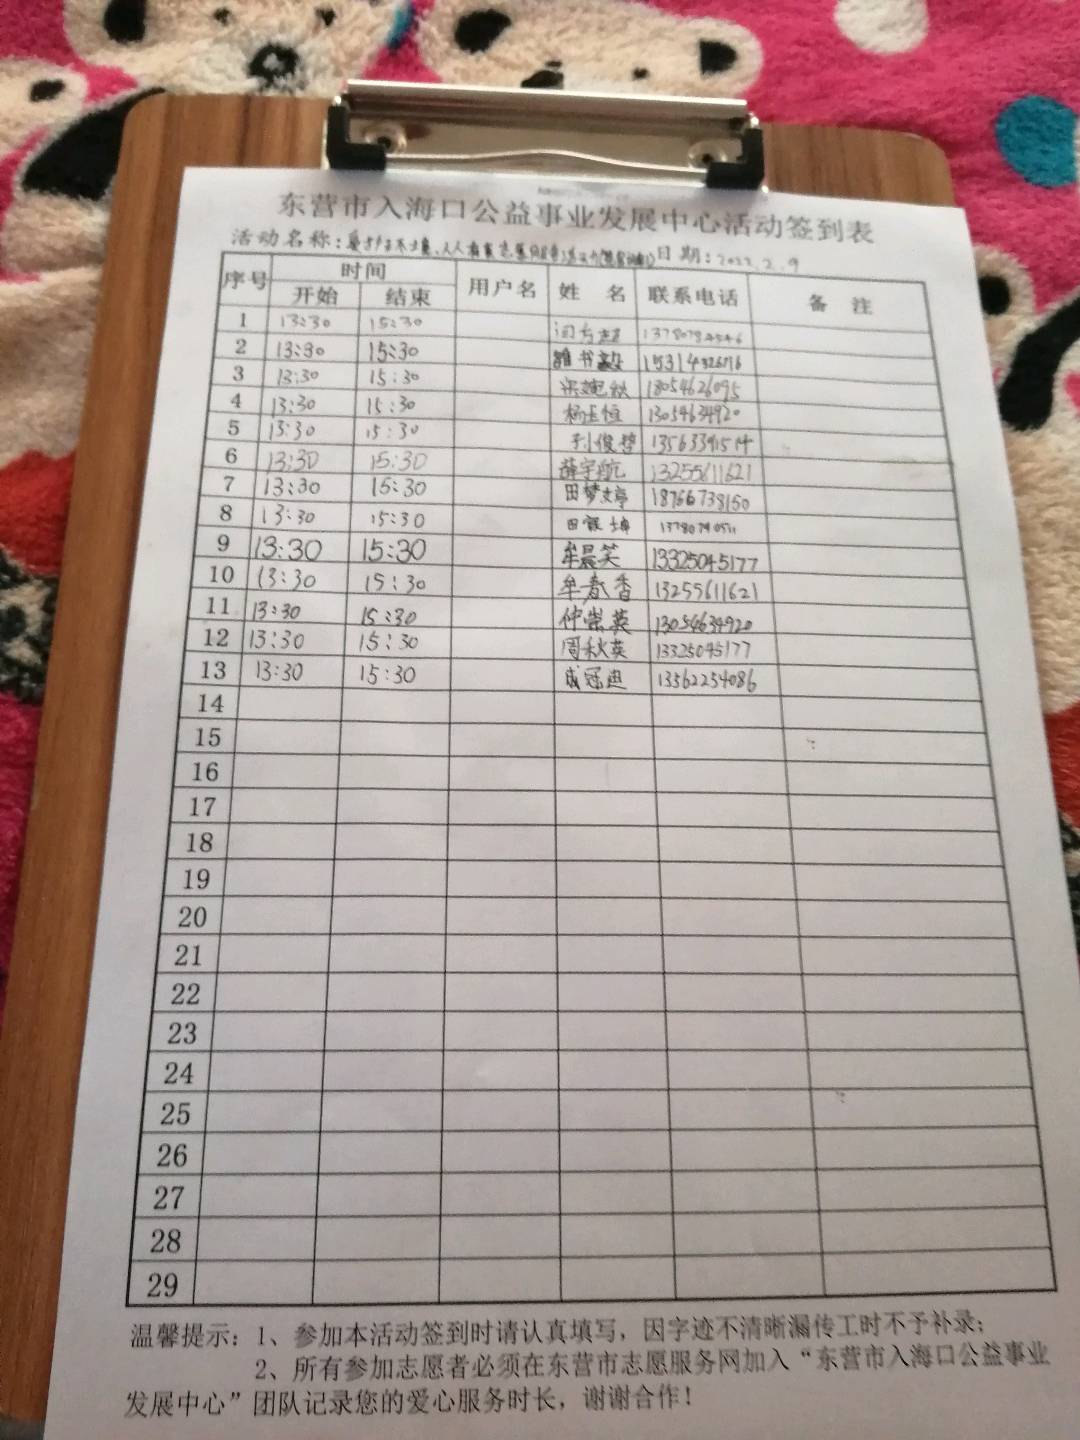 东营市入海口公益事业发展中心活动签到表
活动名称：爱护 日期：2022.2.9
序号 时间 用户名 姓 名 联系电话 备 注
开始 结束
1 13:30 15:30
2 13:30 15:30
3 13:30 15:30 18054626095
4 13:30 15:30 杨玉恒 13054634920
5 13:30 15:30 刘俊哲
6 13:30 15:30 薛宇航 13255611621
7 13:30 15:30 田梦婷 18766738150
8 13:30 15:30
9 13:30 15:30 牟晨笑 13325045177
10 13:30 15:30 牟春香 13255611621
11 13:30 15:30 仲崇英 13054634920
12 13:30 15:30 周秋英 13325045177
13 13:30 15:30 成冠迪 13562254086
14
15
16
17
18
19
20
21
22
23
24
25
26
27
28
29
温馨提示：1、参加本活动签到时请认真填写，因字迹不清晰漏传工时不予补录；
2、所有参加志愿者必须在东营市志愿服务网加入“东营市入海口公益事业
发展中心”团队记录您的爱心服务时长，谢谢合作！